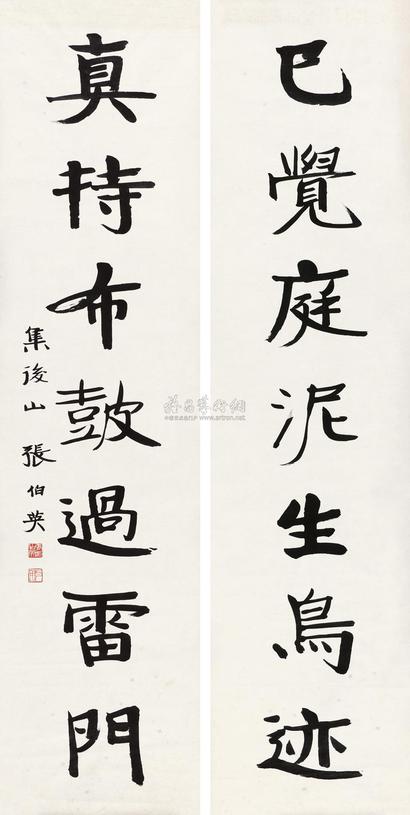 已覺庭泥生鳥迹
真持布鼓過雷門
集後山 張伯英
www.artron.net